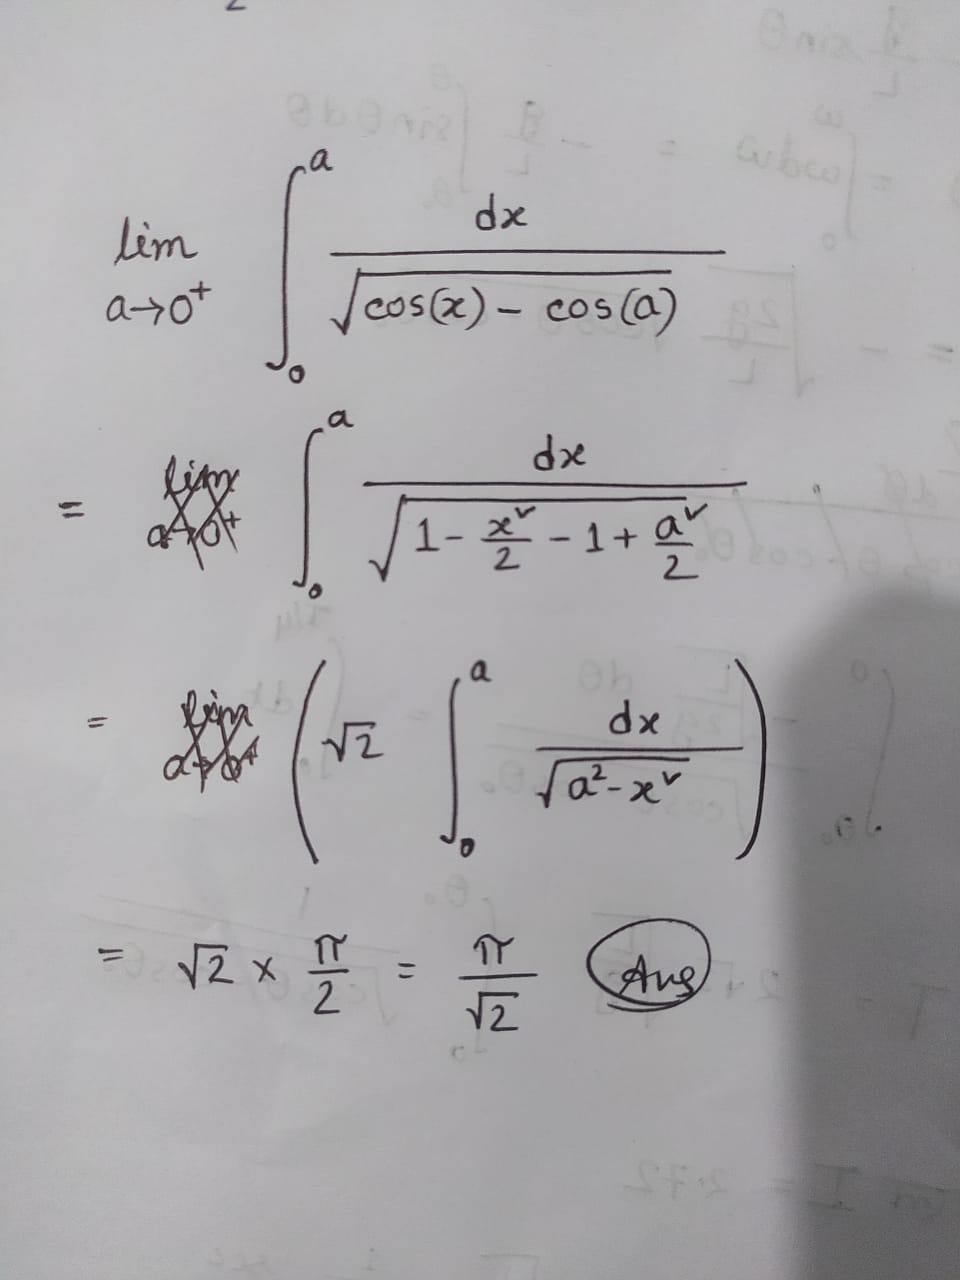 lim a→0⁺ ∫₀ᵃ dx / √(cos(x) – cos(a))
= ∫₀ᵃ dx / √(1 - x²/2 - 1 + a²/2)
= (√2 ∫₀ᵃ dx / √(a² - x²))
= √2 × π/2 = π/√2 Ans